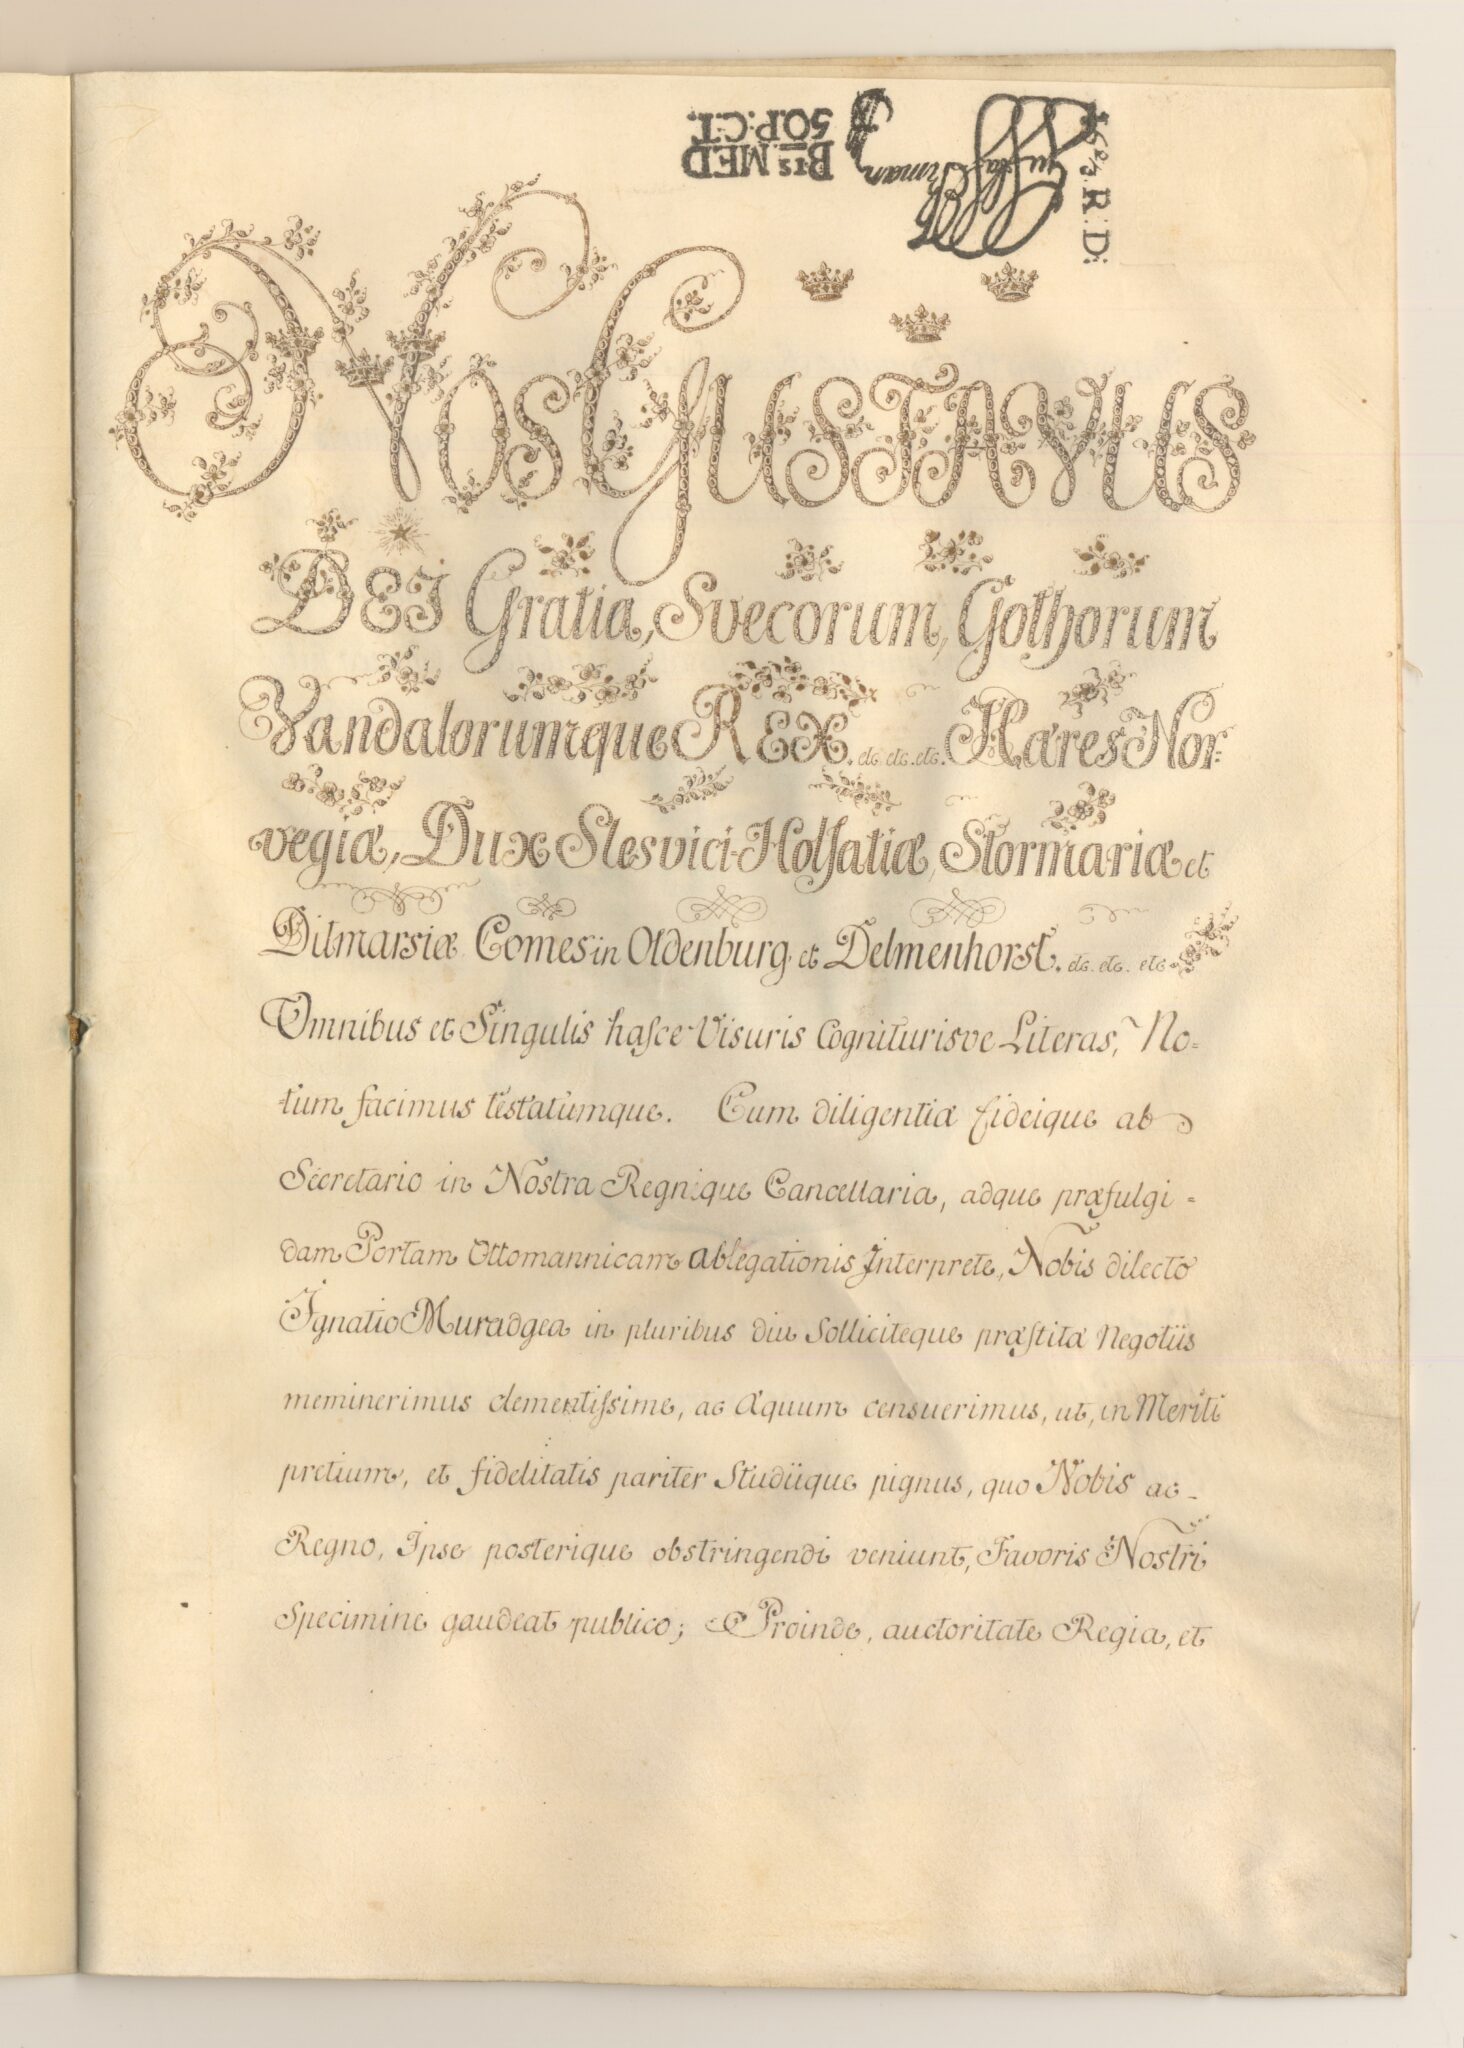 BTS MED
50.P:CT.
R:D:
Nos GUSTAVUS
DEJ Gratia, Svecorum, Gothorum
Vandalorumque REX. etc. etc. etc. Hæres Nor-
vegiæ, Dux Slesvici-Holsatiæ, Stormariæ et
Ditmarsiæ Comes in Oldenburg et Delmenhorst. etc. etc. etc.
Omnibus et Singulis hasce Visuris Cogniturisve Literas, No-
tum facimus testatumque. Cum diligentiæ fideique ab
Secretario in Nostra Regnique Cancellaria, adque præfulgi-
dam Portam Ottomannicam ablegationis Interprete, Nobis dilecto
Ignatio Muradgea in pluribus diu Solliciteque præstitæ Negotiis
meminerimus clementissime, ac Æquum censuerimus, ut, in Meriti
pretium, et fidelitatis pariter Studiique pignus, quo Nobis ac
Regno, Ipse posterique obstringendi veniunt, Favoris Nostri
Specimine gaudeat publico; Proinde, auctoritate Regia, et